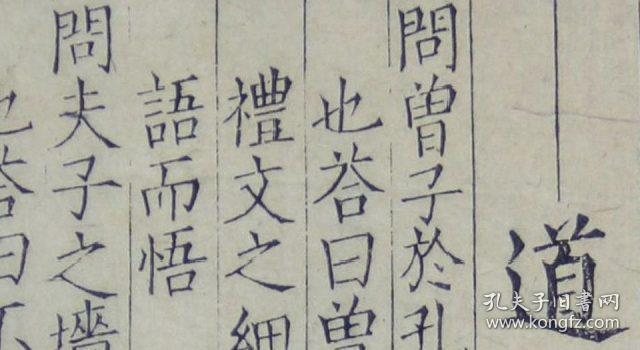 道
問曾子於孔
也荅曰曾
禮文之細
語而悟
問夫子之墻
也荅曰不
孔夫子旧书网
www.kongfz.com